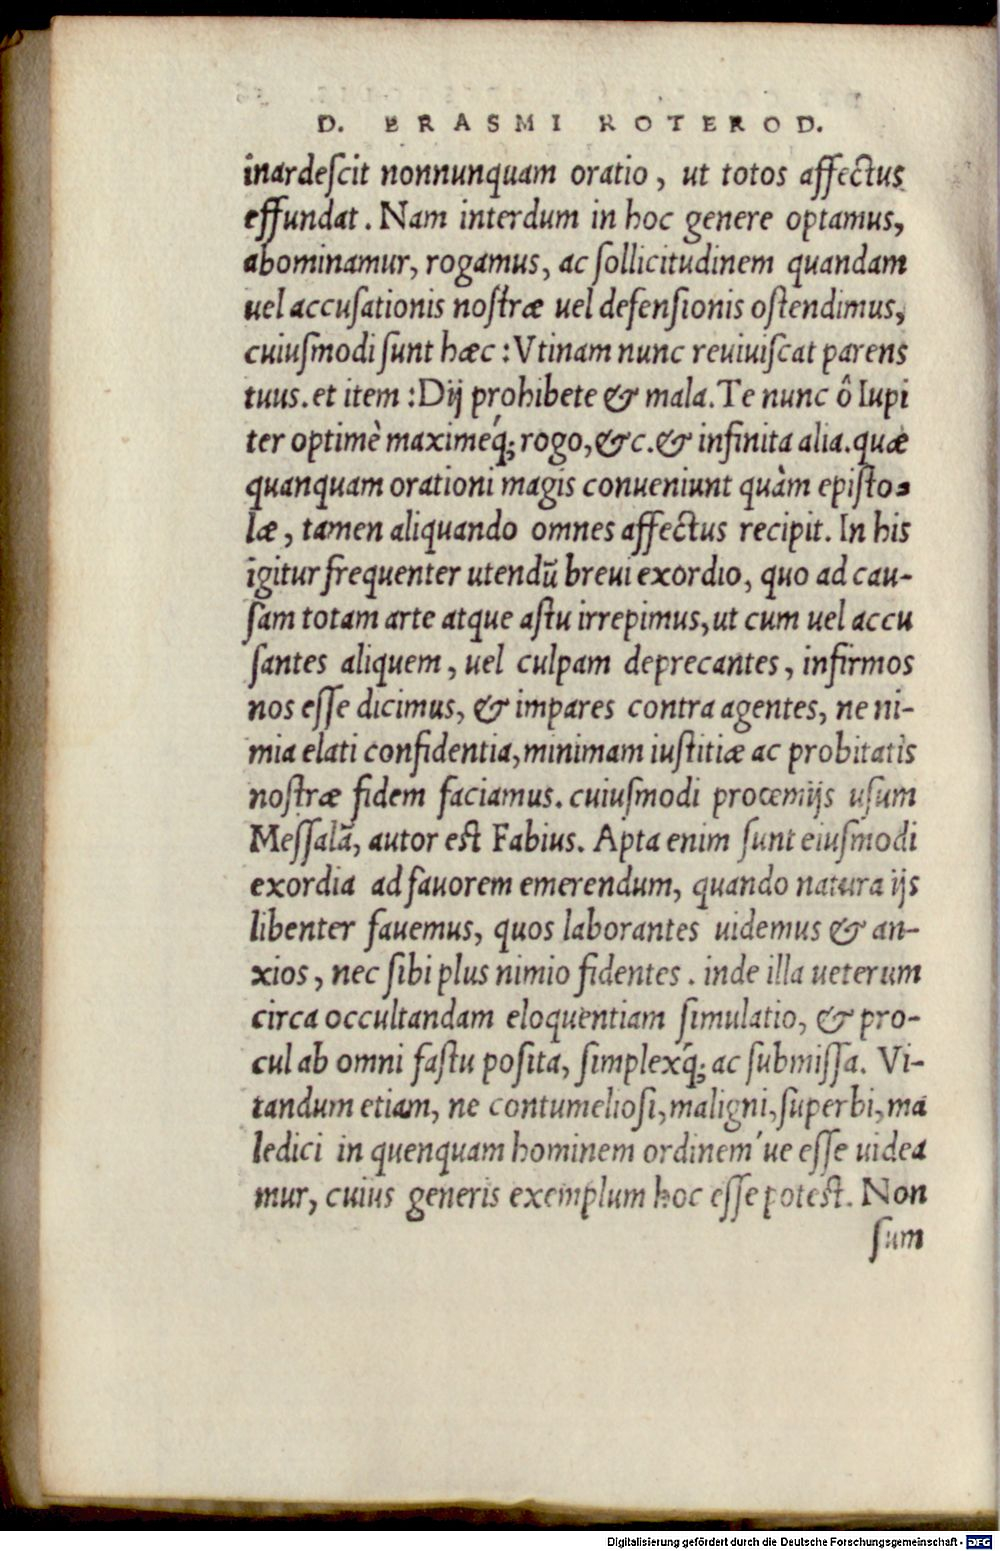 D. ERASMI ROTEROD.
inardeſcit nonnunquam oratio, ut totos affectus
effundat. Nam interdum in hoc genere optamus,
abominamur, rogamus, ac ſollicitudinem quandam
uel accuſationis noſtræ uel defenſionis oſtendimus,
cuiuſmodi ſunt hæc: Vtinam nunc reuiuiſcat parens
tuus. et item: Dij prohibete & mala. Te nunc ô Iupi
ter optimè maximeq́;; rogo, &c. & infinita alia. quæ
quanquam orationi magis conueniunt quàm epiſto-
læ, tamen aliquando omnes affectus recipit. In his
igitur frequenter utendū breui exordio, quo ad cau-
ſam totam arte atque aſtu irrepimus, ut cum uel accu
ſantes aliquem, uel culpam deprecantes, infirmos
nos eſſe dicimus, & impares contra agentes, ne ni-
mia elati confidentia, minimam iuſtitiæ ac probitatis
noſtræ fidem faciamus. cuiuſmodi procemijs uſum
Meſſalā, autor eſt Fabius. Apta enim ſunt eiuſmodi
exordia ad fauorem emerendum, quando natura ijs
libenter fauemus, quos laborantes uidemus & an-
xios, nec ſibi plus nimio fidentes. inde illa ueterum
circa occultandam eloquentiam ſimulatio, & pro-
cul ab omni faſtu poſita, ſimplexq́; ac ſubmiſſa. Vi-
tandum etiam, ne contumelioſi, maligni, ſuperbi, ma
ledici in quenquam hominem ordinem ́ue eſſe uidea
mur, cuius generis exemplum hoc eſſe poteſt. Non
ſum
Digitalisierung gefördert durch die Deutsche Forschungsgemeinschaft - DFG